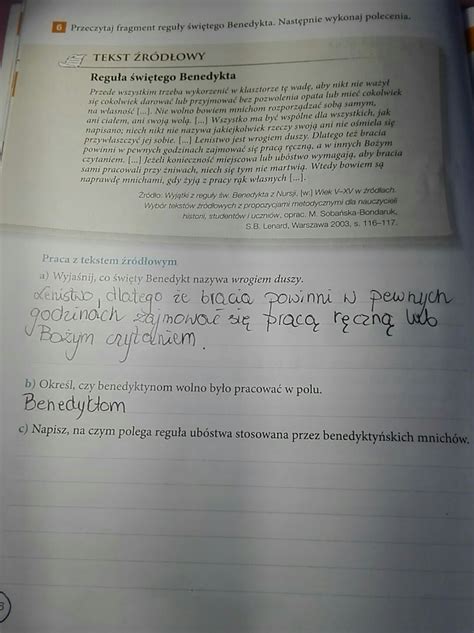 6 Przeczytaj fragment reguły świętego Benedykta. Następnie wykonaj polecenia.
TEKST ŹRÓDŁOWY
Reguła świętego Benedykta
Przede wszystkim trzeba wykorzenić w klasztorze tę wadę, aby nikt nie ważył
się cokolwiek darować lub przyjmować bez pozwolenia opata lub mieć cokolwiek
na własność [...]. Nie wolno bowiem mnichom rozporządzać sobą samym,
ani ciałem, ani swoją wolą. [...] Wszystko ma być wspólne dla wszystkich, jak
napisano; niech nikt nie nazywa jakiejkolwiek rzeczy swoją ani nie ośmiela się
przywłaszczyć jej sobie. [...] Lenistwo jest wrogiem duszy. Dlatego też bracia
powinni w pewnych godzinach zajmować się pracą ręczną, a w innych Bożym
czytaniem. [...] Jeżeli konieczność miejscowa lub ubóstwo wymagają, aby bracia
sami pracowali przy żniwach, niech się tym nie martwią. Wtedy bowiem są
naprawdę mnichami, gdy żyją z pracy rąk własnych [...].
Źródło: Wyjątki z reguły św. Benedykta z Nursji, [w:] Wiek V–XV w źródłach.
Wybór tekstów źródłowych z propozycjami metodycznymi dla nauczycieli
historii, studentów i uczniów, oprac. M. Sobańska-Bondaruk,
S.B. Lenard, Warszawa 2003, s. 116–117.
Praca z tekstem źródłowym
a) Wyjaśnij, co święty Benedykt nazywa wrogiem duszy.
Lenistwo, dlatego że bracia powinni w pewnych
godzinach zajmować się pracą ręczną lub
Bożym czytaniem.
b) Określ, czy benedyktynom wolno było pracować w polu.
Benedyktom
c) Napisz, na czym polega reguła ubóstwa stosowana przez benedyktyńskich mnichów.